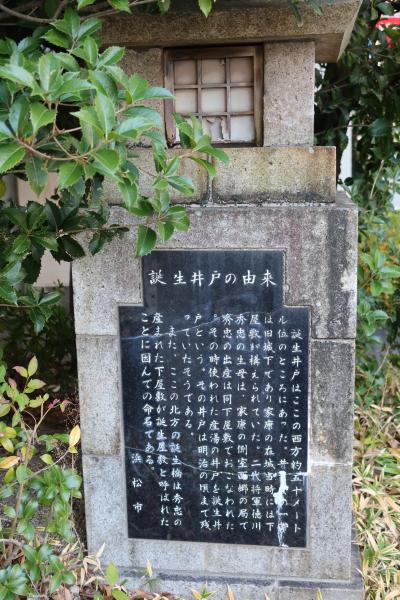 誕生井戸の由来
誕生井戸はここの西方約五十メート
ル位のところにあった。井戸の一帯
は旧城下であり家康の在城当時には下
屋敷が構えられていた。二代将軍徳川
秀忠の生母は、家康の側室西郷の局で
秀忠の出産は同下屋敷でおこなわれた
。その時使われた産湯の井戸を誕生井
戸という。その井戸は明治の頃まで残
っていたそうである。
また、ここの北方の誕生橋は秀忠の
産まれた下屋敷が誕生屋敷と呼ばれた
ことに因んでの命名である。
浜松市